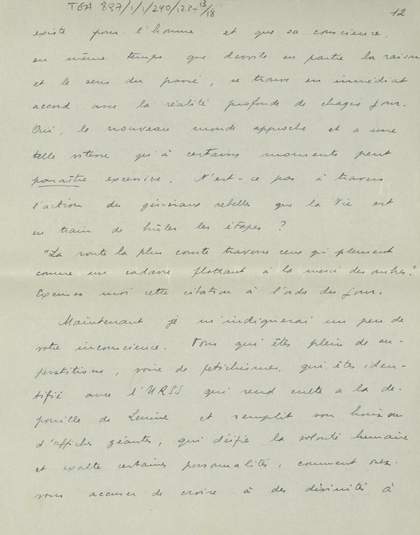 TGA 897/1/1/240/123-13/18
12
existe pour l'homme et que sa conscience
en même temps que dévoile en partie la raison
et le sens du passé, se trouve en immédiat
accord avec la réalité profonde de chaque jour.
Oui, le nouveau monde approche et a une
telle vitesse qui à certains moments peut
paraître excessive. N'est-ce pas à travers
l'action des généraux rebelles que la Vie est
en train de brûler les étapes ?
"La route la plus courte traverse ceux qui
comme un cadavre flottant à la merci des autres."
Excusez moi cette citation à l'ordre du jour.
Maintenant je m'indignerai un peu de
votre inconscience. Vous qui êtes plein de su-
perstitions, voire de fétichismes, qui êtes iden-
tifié avec l'URSS qui rend culte a la dé-
pouille de Lenine et remplit son horizon
d'affiches géantes, qui déifie la volonté humaine
et exalte certaines personnalités, comment osez
vous accuser de croire à des divinités à